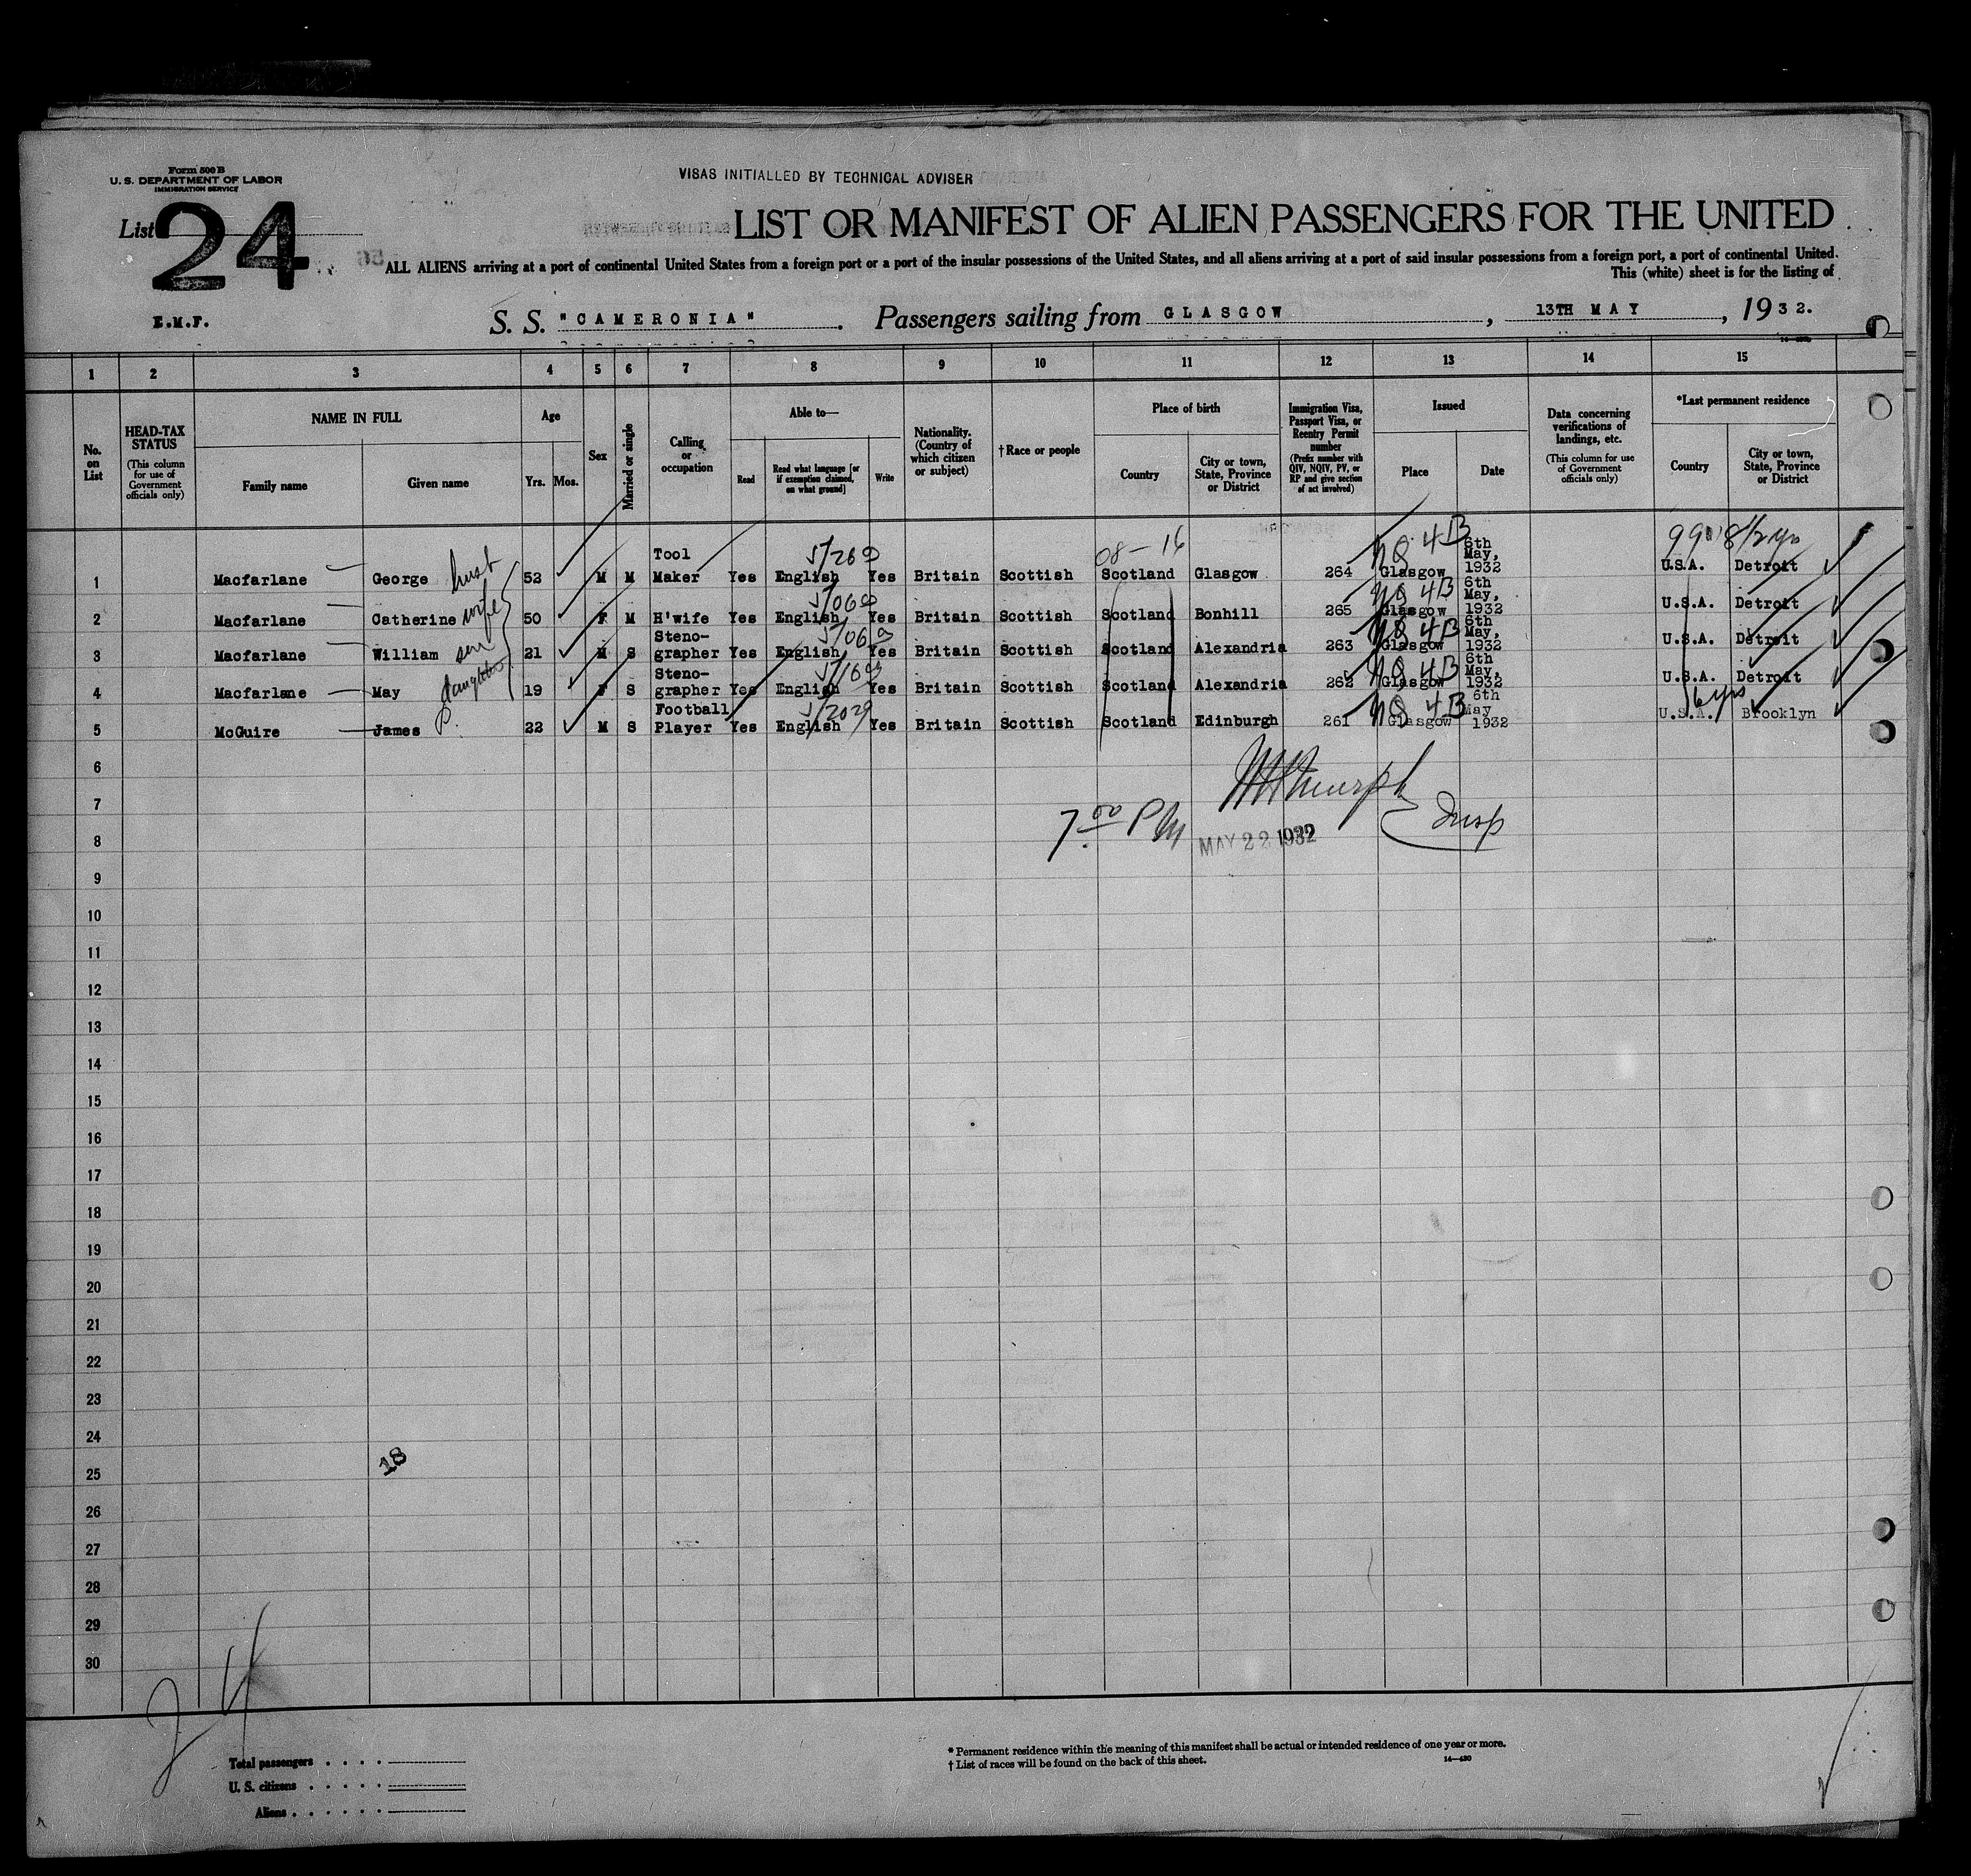 Form 500 B
U. S. DEPARTMENT OF LABOR
IMMIGRATION SERVICE
VISAS INITIALLED BY TECHNICAL ADVISER
List 24
LIST OR MANIFEST OF ALIEN PASSENGERS FOR THE UNITED
ALL ALIENS arriving at a port of continental United States from a foreign port or a port of the insular possessions of the United States, and all aliens arriving at a port of said insular possessions from a foreign port, a port of continental United
This (white) sheet is for the listing of
E.M.F.
S. S. "CAMERONIA". Passengers sailing from GLASGOW, 13TH MAY, 1932.
1 2 3 4 5 6 7 8 9 10 11 12 13 14 15
No. on List
HEAD-TAX STATUS (This column for use of Government officials only)
NAME IN FULL
Family name Given name
Age
Yrs. Mos.
Sex
Married or single
Calling or occupation
Able to—
Read Read what language [or if exemption claimed, on what ground] Write
Nationality. (Country of which citizen or subject)
†Race or people
Place of birth
Country City or town, State, Province or District
Immigration Visa, Passport Visa, or Reentry Permit number (Prefix number with QIV, NQIV, PV, or RP and give section of act involved)
Issued
Place Date
Data concerning verifications of landings, etc. (This column for use of Government officials only)
*Last permanent residence
Country City or town, State, Province or District
08-16
1 Macfarlane George husb 52 M M Tool Maker Yes English Yes Britain Scottish Scotland Glasgow 264 NQ 4B Glasgow 6th May, 1932 U.S.A. Detroit
2 Macfarlane Catherine wife 50 F M H'wife Yes English Yes Britain Scottish Scotland Bonhill 265 NQ 4B Glasgow 6th May, 1932 U.S.A. Detroit
3 Macfarlane William son 21 M S Steno-grapher Yes English Yes Britain Scottish Scotland Alexandria 263 NQ 4B Glasgow 6th May, 1932 U.S.A. Detroit
4 Macfarlane May daughter 19 F S Steno-grapher Yes English Yes Britain Scottish Scotland Alexandria 262 NQ 4B Glasgow 6th May, 1932 U.S.A. Detroit
5 McGuire James P. 22 M S Football Player Yes English Yes Britain Scottish Scotland Edinburgh 261 NQ 4B Glasgow 6th May 1932 U.S.A. 6 yrs Brooklyn
6
7
7.00 PM MAY 22 1932 Insp
8
9
10
11
12
13
14
15
16
17
18
19
20
21
22
23
24
18
25
26
27
28
29
30
24
Total passengers
U. S. citizens
Aliens
* Permanent residence within the meaning of this manifest shall be actual or intended residence of one year or more.
† List of races will be found on the back of this sheet.
14—430